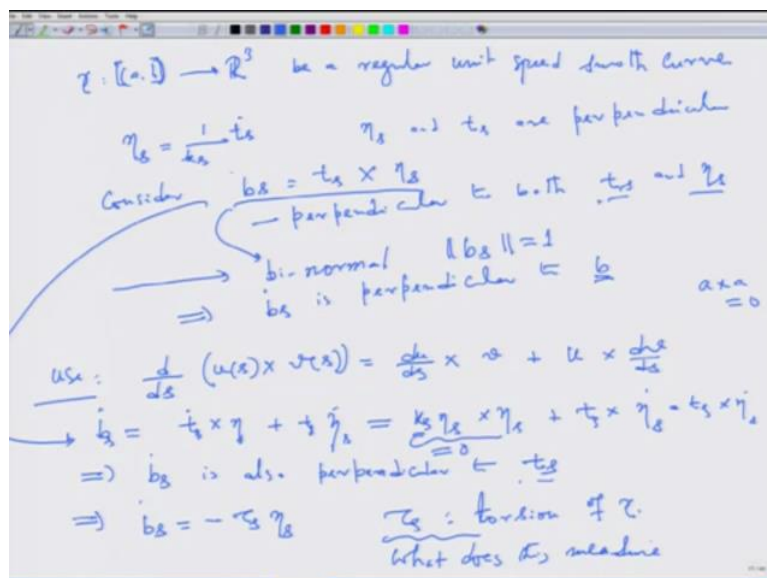 γ : [(a, b]) → ℝ³ be a regular unit speed smooth curve
η_s = 1/k_s ṫ_s η_s and t_s are perpendicular
Consider b_s = t_s × η_s
— perpendicular to both t_s and η_s
bi-normal ||b_s|| = 1
⇒ ḃ_s is perpendicular to b
a×a = 0
use: d/ds (u(s) × v(s)) = du/ds × v + u × dv/ds
ḃ_s = ṫ_s × η + t_s η̇_s = k_s η_s × η_s + t_s × η̇_s = t_s × η̇_s
= 0
⇒ ḃ_s is also perpendicular to t_s
⇒ ḃ_s = − τ_s η_s τ_s : torsion of γ.
What does this measure